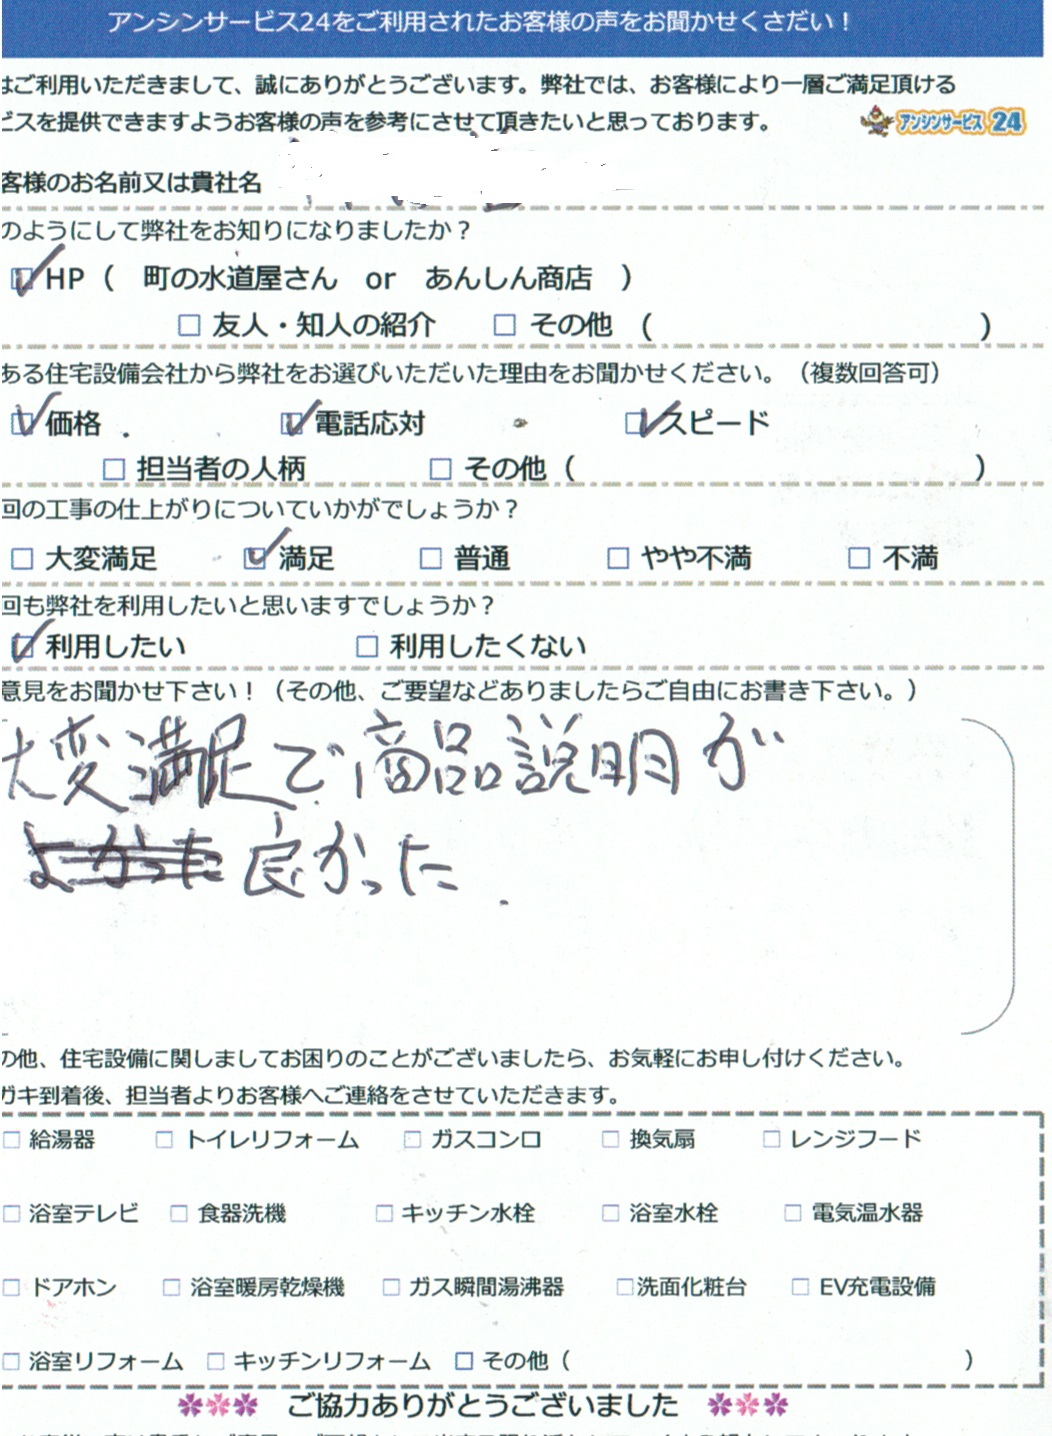 アンシンサービス24をご利用されたお客様の声をお聞かせくさだい！
はご利用いただきまして、誠にありがとうございます。弊社では、お客様により一層ご満足頂ける
ビスを提供できますようお客様の声を参考にさせて頂きたいと思っております。
アンシンサービス24
客様のお名前又は貴社名
のようにして弊社をお知りになりましたか？
☑HP（　町の水道屋さん　or　あんしん商店　）
☐ 友人・知人の紹介　☐ その他　（　）
ある住宅設備会社から弊社をお選びいただいた理由をお聞かせください。（複数回答可）
☑価格　☑電話応対　☑スピード
☐ 担当者の人柄　☐ その他（　）
回の工事の仕上がりについていかがでしょうか？
☐ 大変満足　☑ 満足　☐ 普通　☐ やや不満　☐ 不満
回も弊社を利用したいと思いますでしょうか？
☑利用したい　☐ 利用したくない
意見をお聞かせ下さい！（その他、ご要望などありましたらご自由にお書き下さい。）
大変満足で商品説明が
よかった 良かった
の他、住宅設備に関しましてお困りのことがございましたら、お気軽にお申し付けください。
ガキ到着後、担当者よりお客様へご連絡をさせていただきます。
☐ 給湯器　☐ トイレリフォーム　☐ ガスコンロ　☐ 換気扇　☐ レンジフード
☐ 浴室テレビ　☐ 食器洗機　☐ キッチン水栓　☐ 浴室水栓　☐ 電気温水器
☐ ドアホン　☐ 浴室暖房乾燥機　☐ ガス瞬間湯沸器　☐洗面化粧台　☐ EV充電設備
☐ 浴室リフォーム　☐ キッチンリフォーム　☐ その他（　）
ご協力ありがとうございました